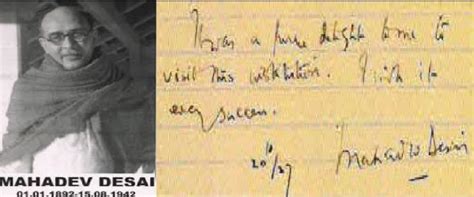 MAHADEV DESAI
01.01.1892-15.08.1942
It was a pure delight to me to
visit this institution. I wish it
every success.
Mahadev Desai